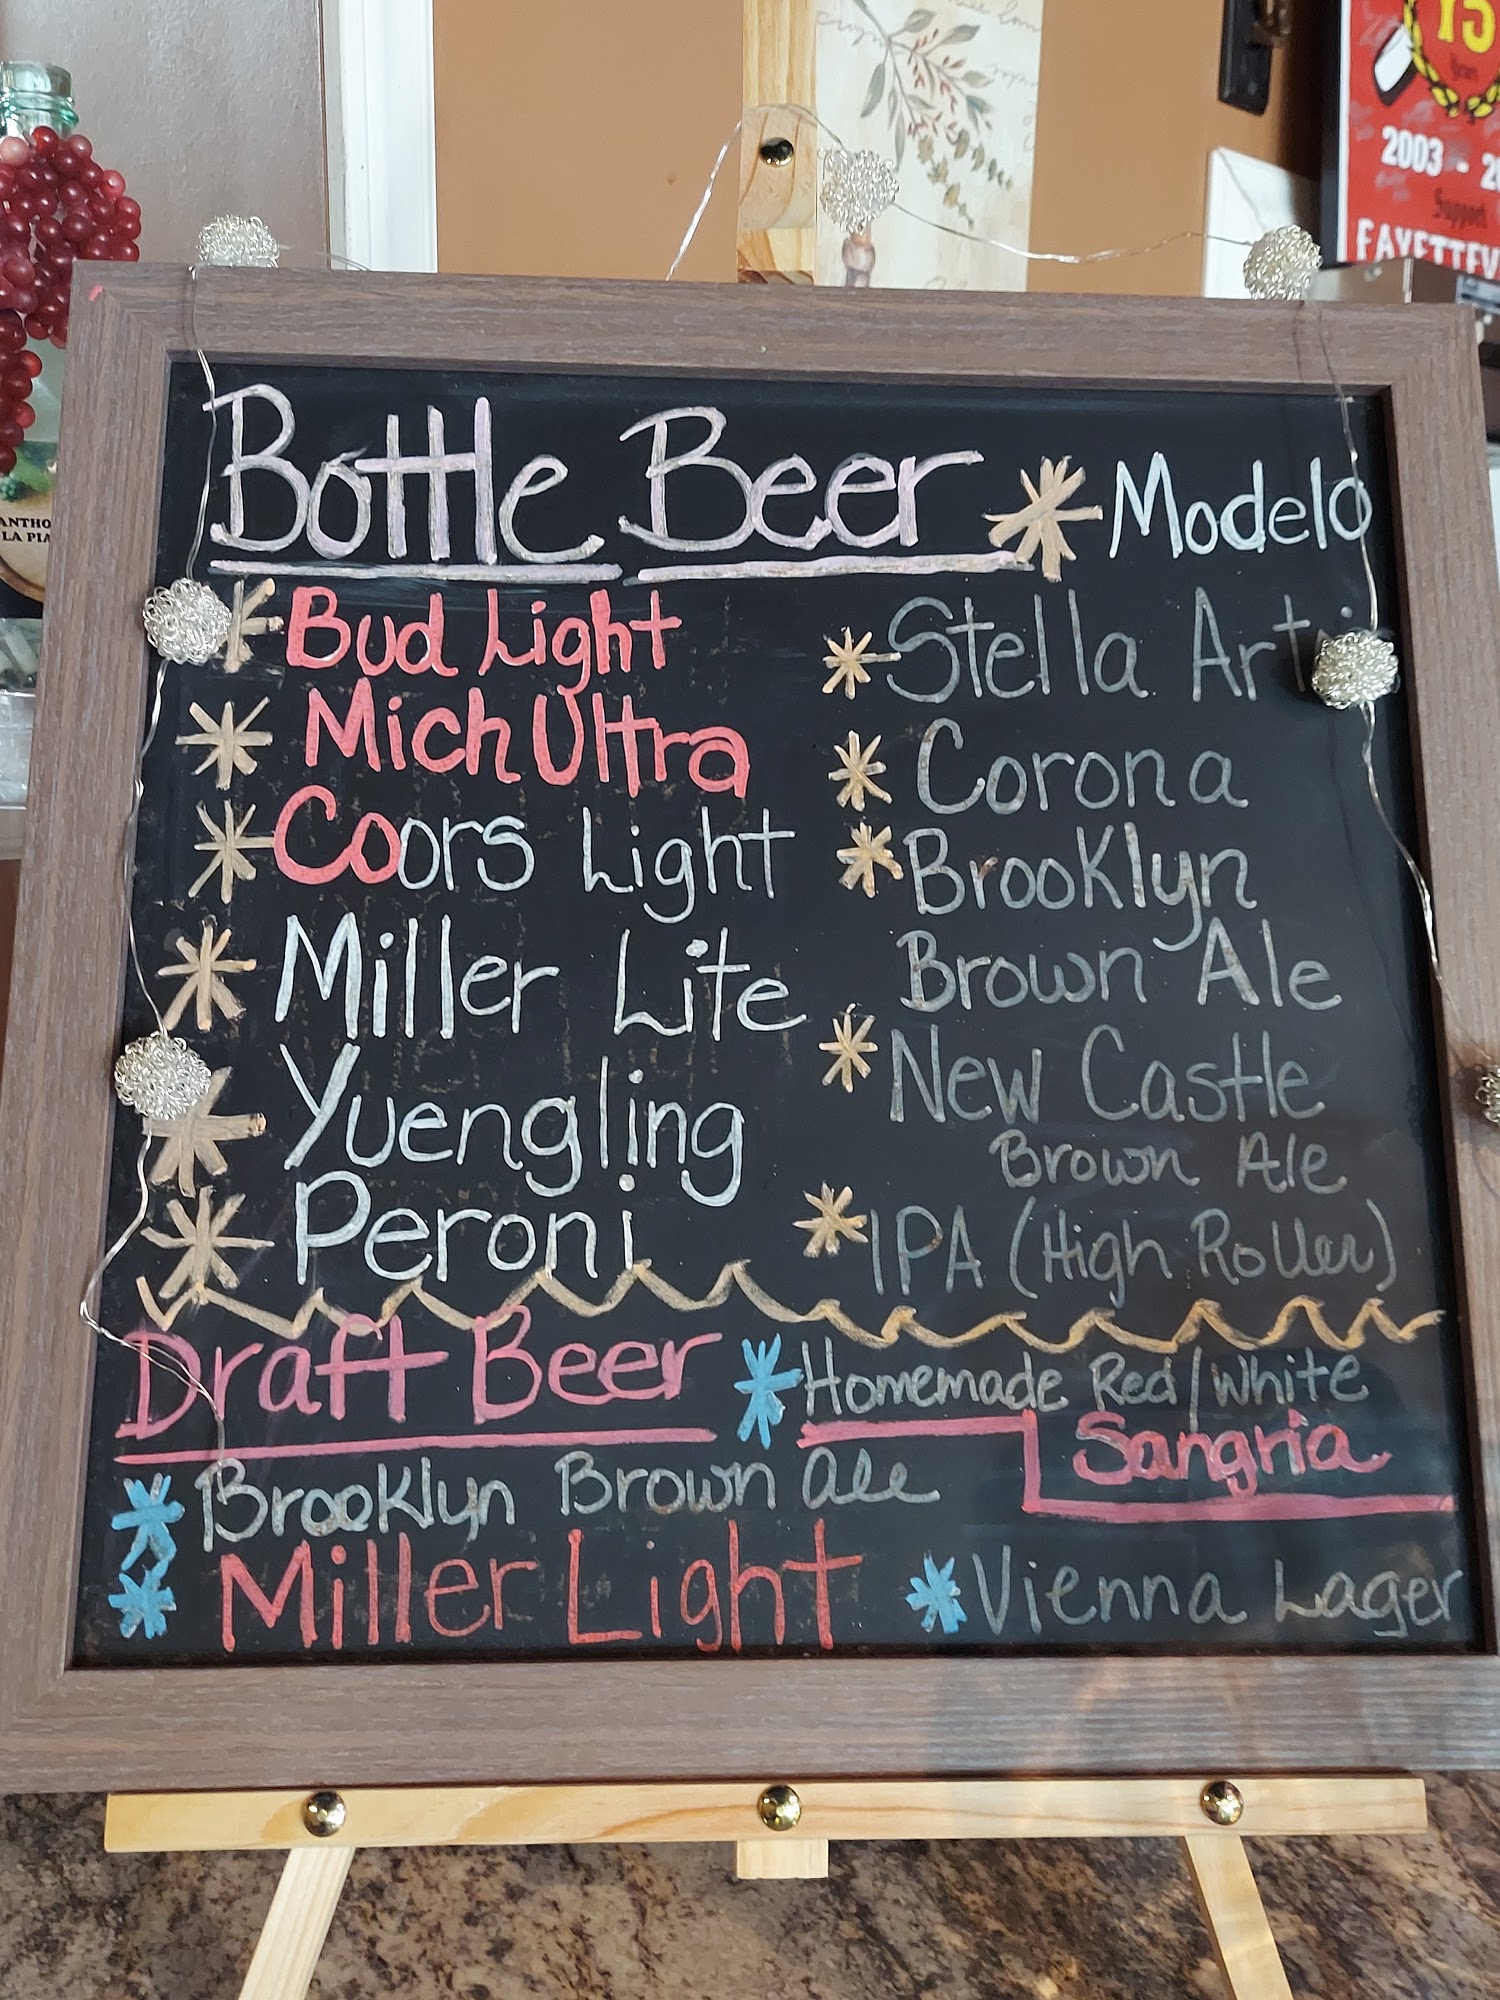 Bottle Beer
Modelo
Bud Light
Mich Ultra
Coors Light
Miller Lite
Yuengling
Peroni
Stella
Corona
Brooklyn
Brown Ale
New Castle
Brown Ale
IPA (High Roller)
Draft Beer
Homemade Red/White
Sangria
Brooklyn Brown Ale
Miller Light
Vienna Lager
15
Years
2003 -
Support